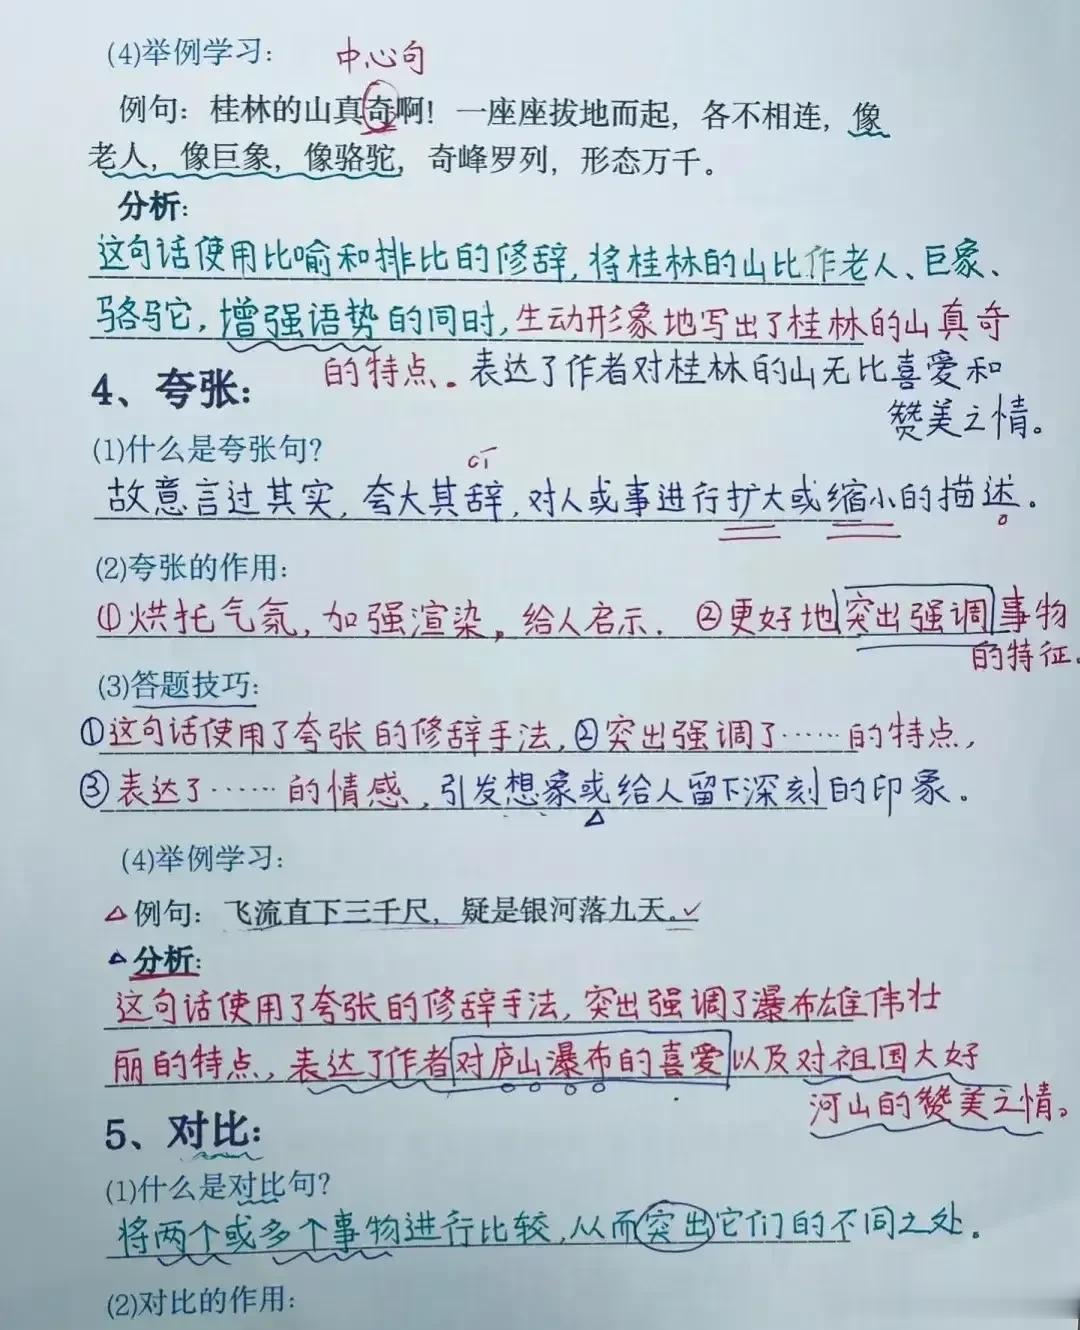 (4)举例学习： 中心句
例句：桂林的山真奇啊！一座座拔地而起，各不相连，像
老人，像巨象，像骆驼，奇峰罗列，形态万千。
分析：
这句话使用比喻和排比的修辞，将桂林的山比作老人、巨象、
骆驼，增强语势的同时，生动形象地写出了桂林的山真奇
的特点。表达了作者对桂林的山无比喜爱和
赞美之情。
4、夸张：
(1)什么是夸张句？
cí
故意言过其实，夸大其辞，对人或事进行扩大或缩小的描述。
(2)夸张的作用：
①烘托气氛，加强渲染，给人启示. ②更好地突出强调事物
的特征.
(3)答题技巧：
①这句话使用了夸张的修辞手法，②突出强调了……的特点，
③表达了……的情感，引发想象或给人留下深刻的印象。
(4)举例学习：
例句：飞流直下三千尺，疑是银河落九天。
分析：
这句话使用了夸张的修辞手法，突出强调了瀑布雄伟壮
丽的特点，表达了作者对庐山瀑布的喜爱以及对祖国大好
河山的赞美之情。
5、对比：
(1)什么是对比句？
将两个或多个事物进行比较，从而突出它们的不同之处。
(2)对比的作用：